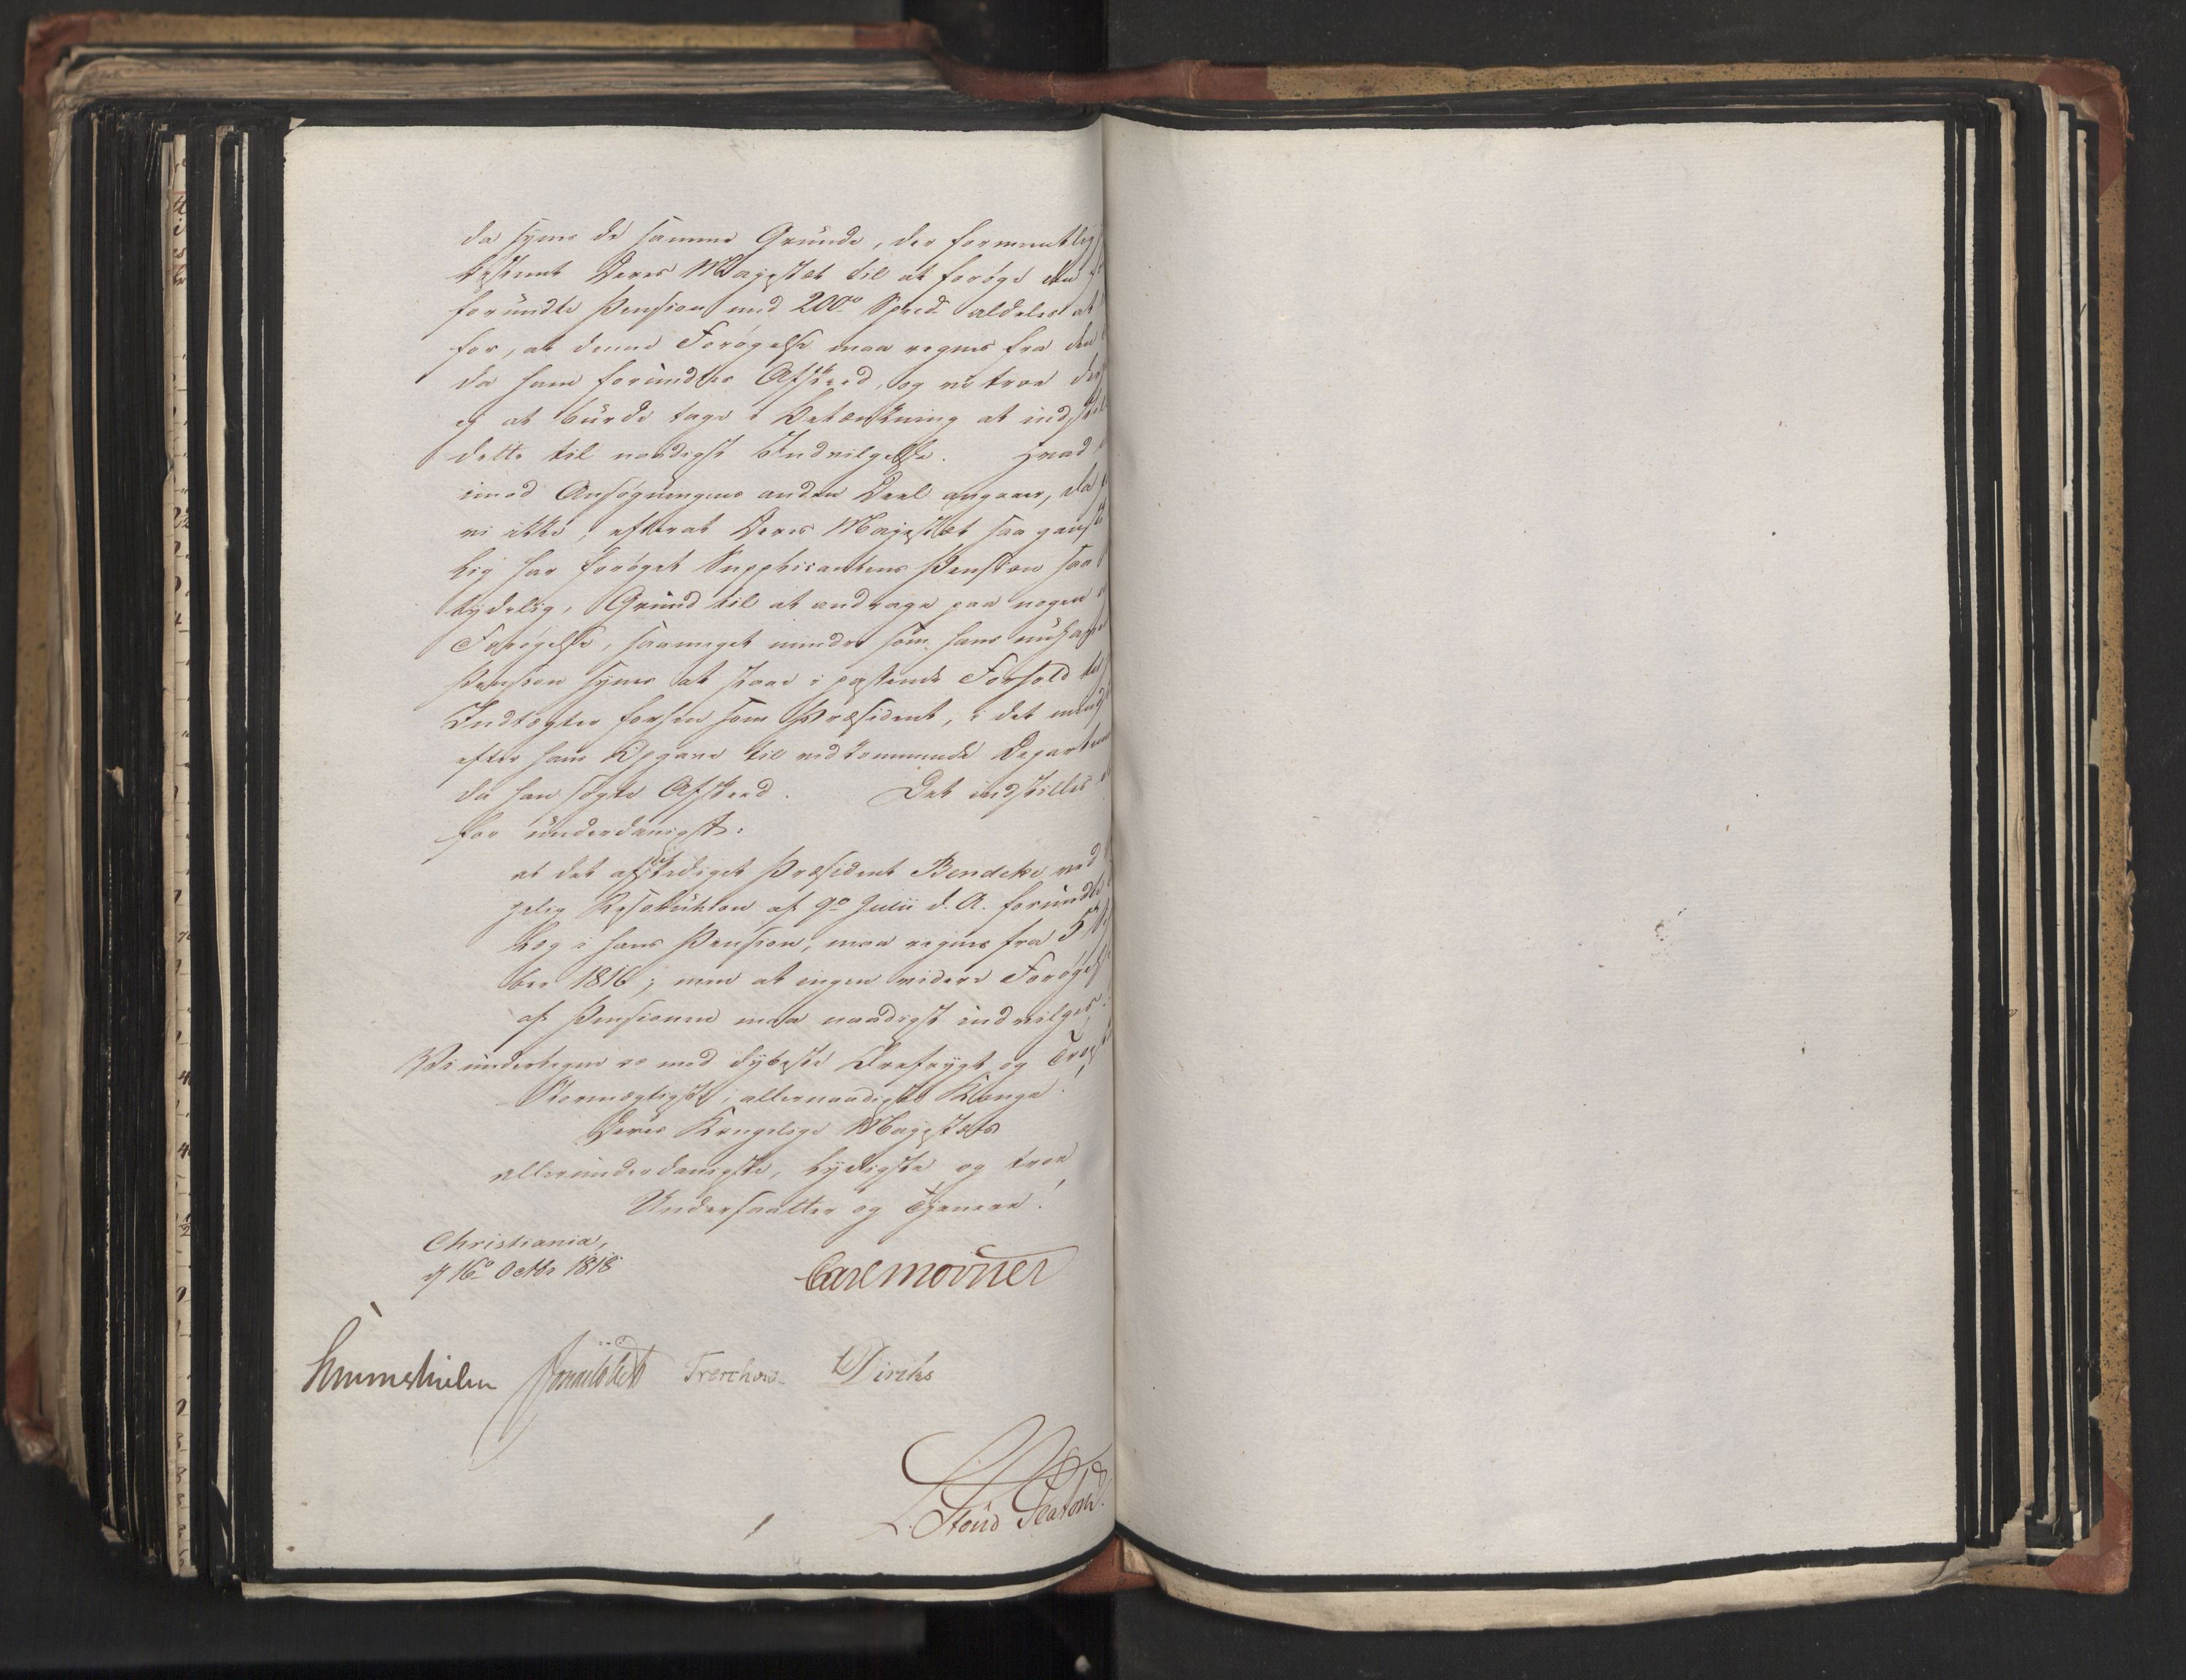 da synes de samme Grunde, der formentlig
bestemt Deres Majestæt til at forøge den
forundte Pension med 200de Specd. aldeles at
for, at denne Forøgelse maa regnes fra den
da ham forundtes Afskeed, og vi troe der
ej at burde tage i Betænkning at indstille
dette til naadigst Indvilgelse. Hvad
imod Ansøgningens anden Deel angaaer, da
vi ikke, efterat Deres Majestæt saa
lig har forøget Supplicantens Pension saa
tydelig, Grund til at andrage paa nogen
Forøgelse, saameget mindre som hans
Pension synes at staae i passende Forhold til
Indtægter forhen som Præsident, i det mindste
efter hans Opgave til vedkommende Departem
da han søgte Afskeed. Det indstilles
for underdanigst:
at det afskediget Præsident Bendeke ved
gelig Resolution af 9de Julii d. A. forundte
læg i hans Pension, maa regnes fra 5
ber 1816; men at ingen videre Forøgelse
af Pensionen maa naadigst indvilges.
Vi undertegne os med dybeste Ærefrygt og Troeskab
Stormægtigste, allernaadigste Konge!
Deres Kongelige Majestæts
allerunderdanigste, lydigste og troe
Undersaatter og Tjenere!
Christiania,
d 16de Octbr 1818
Carl Mörner
Hummelhielm Treschow Diriks
L. Stoud Platou